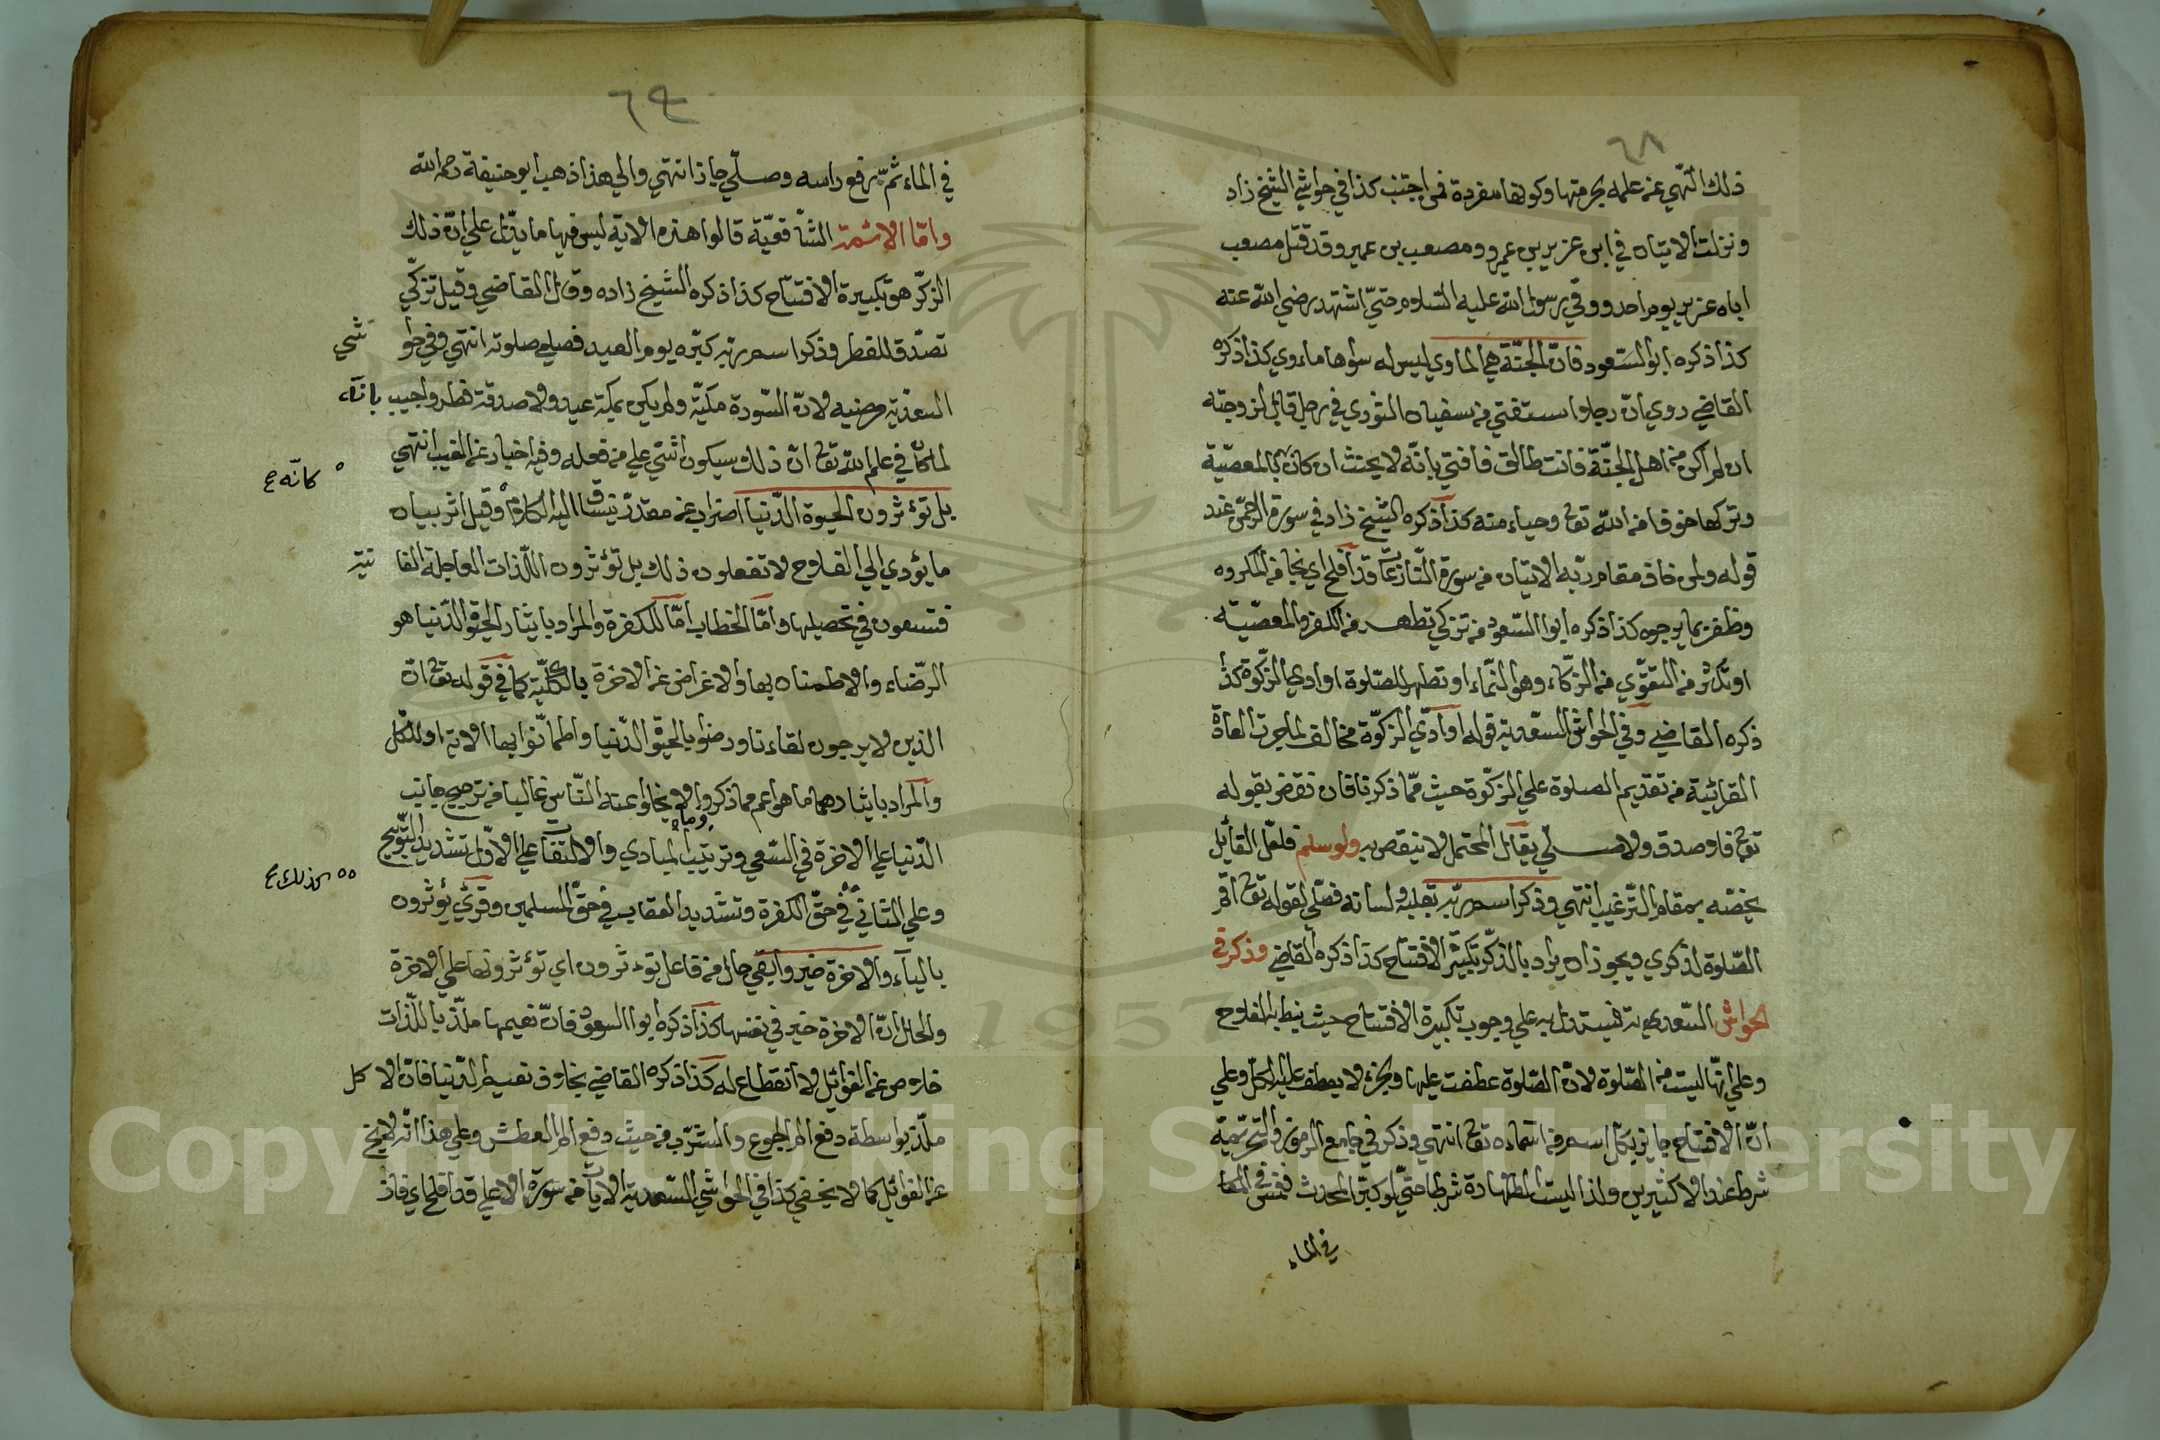 ٦٨
ذلك النهي عنه علمه بحرمتها وكونها مفردة فمن اجتنب كذا في حواشي الشيخ زاد
ونزلت الايتان في ابن عزيز بن عمير ومصعب بن عمير وقد قتل مصعب
اباه عزيز يوم احد ووقي رسول الله عليه السلام حتي اشتهد رضي الله عنه
كذا ذكره ابو السعود فان الجنة هي الماوي ليس له سواها ماوي كذا ذكره
القاضي روي ان رجلا استفتي من سفيان الثوري في رجل قائل لزوجته
ان لم اكن من اهل الجنة فانت طالق فافتي بانه لا يحنث ان كان المعصية
وتركها خوفا من الله تعا وحياء منه كذا ذكره الشيخ زاد في سورة الرحمن عند
قوله ولمن خاف مقام ربه الايتان من سورة النازعات قد افلح اي نجا من المكروه
وظفر بما يرجوه كذا ذكره ابوا السعود من تزكي تطهر من الكفر والمعصية
او تكثر من التقوي من الزكاء وهو النماء او تطهر للصلوة او ادي الزكوة كذا
ذكره القاضي وفي الحواشي السعدية قوله او ادي الزكوة مخالف لما جرت العادة
القرانية من تقديم الصلوة علي الزكوة حيث مما ذكرتا فان نقض بقوله
تعا فلا صدق ولا صلي يقال المحتمل لا ينتقض به ولو سلم فلعل القائل
يخصه بمقام الترغيب انتهي وذكر اسم ربه بقلبه ولسانه فصلي لقوله تعا اقم
الصلوة لذكري ويجوز ان يراد بالذكر تكبير الافتتاح كذا ذكره القاضي وذكر في
الحواشي السعدية فيستدل به علي وجوب تكبيرة الافتتاح حيث نيط به الفلاح
وعلي انها ليست من الصلوة لان الصلوة عطفت عليها والجزء لا يعطف عليه الكل وعلي
ان الافتتاح جايز بكل اسم من اسمائه تعا انتهي وذكر في جامع الرموز والتحريمة
شرط عند الاكثرين ولذا ليست الطهارة شرطا حتي لو كبر المحدث فغمس في الماء
في الماء
٦٩
في الماء ثم رفع راسه وصلي جاز انتهي والي هذا ذهب ابو حنيفة رحمه الله
واما الائمة الشافعية قالوا هذه الاية ليس فيها ما يدل علي ان ذلك
الذكر هو تكبيرة الافتتاح كذا ذكره الشيخ زاده وقال القاضي وقيل تزكي
تصدق للفطر وذكر اسم ربه كبره يوم العيد فصلي صلوته انتهي وفي حوا شي
السعدية مرضيه لان السورة مكية ولم يكن بمكة عيد ولا صدقة فطر واجيب بانه
لما كان في علم الله تعا ان ذلك سيكون اثني علي من فعله وفيه اخبار عن الغيب انتهي
كانه ع
بل تؤثرون الحيوة الدنيا اضراب عن مقدر ينساق اليه الكلام وقيل اثر بيان
ما يؤدي الي الفلاح لا تفعلون ذلك بل تؤثرون اللذات العاجلة الفا نية
فتسعون في تحصيلها واما الخطاب اما للكفرة والمراد بايثار الحيوة الدنيا هو
الرضاء والاطمنان بها والاعراض عن الاخرة بالكلية كما في قوله تعا ان
الذين لا يرجون لقاءنا ورضوا بالحيوة الدنيا واطمأنوا بها الاية او للكل
والمراد بايثارها ما هو اعم مما ذكر وما لا يخلوا عنه الناس غالبا من ترجيح جانب
الدنيا علي الاخرة في السعي وترتيب المبادي والالتفات علي الاول تشديد التوبيخ
وعلي الثاني في حق الكفرة وتشديد العقاب في حق المسلمين وقرئ يؤثرون
كذلك ع
بالياء والاخرة خير وابقي حال من فاعل تؤثرون اي تؤثرونها علي الاخرة
والحال ان الاخرة خير في نفسها كذا ذكره ابوا السعود فان نعيمها ملذ بالذات
خلاص عن الغوائل لا انقطاع له كذا ذكره القاضي بخلاف نعيم الدنيا فان الا كل
ملذ بواسطة دفع الم الجوع والشرب من حيث دفع الم العطش وعلي هذا انه لا يخ
عن الغوائل كما لا يخفي كذا في الحواشي السعدية الايات من سورة الاعلي قد افلح اي فاز